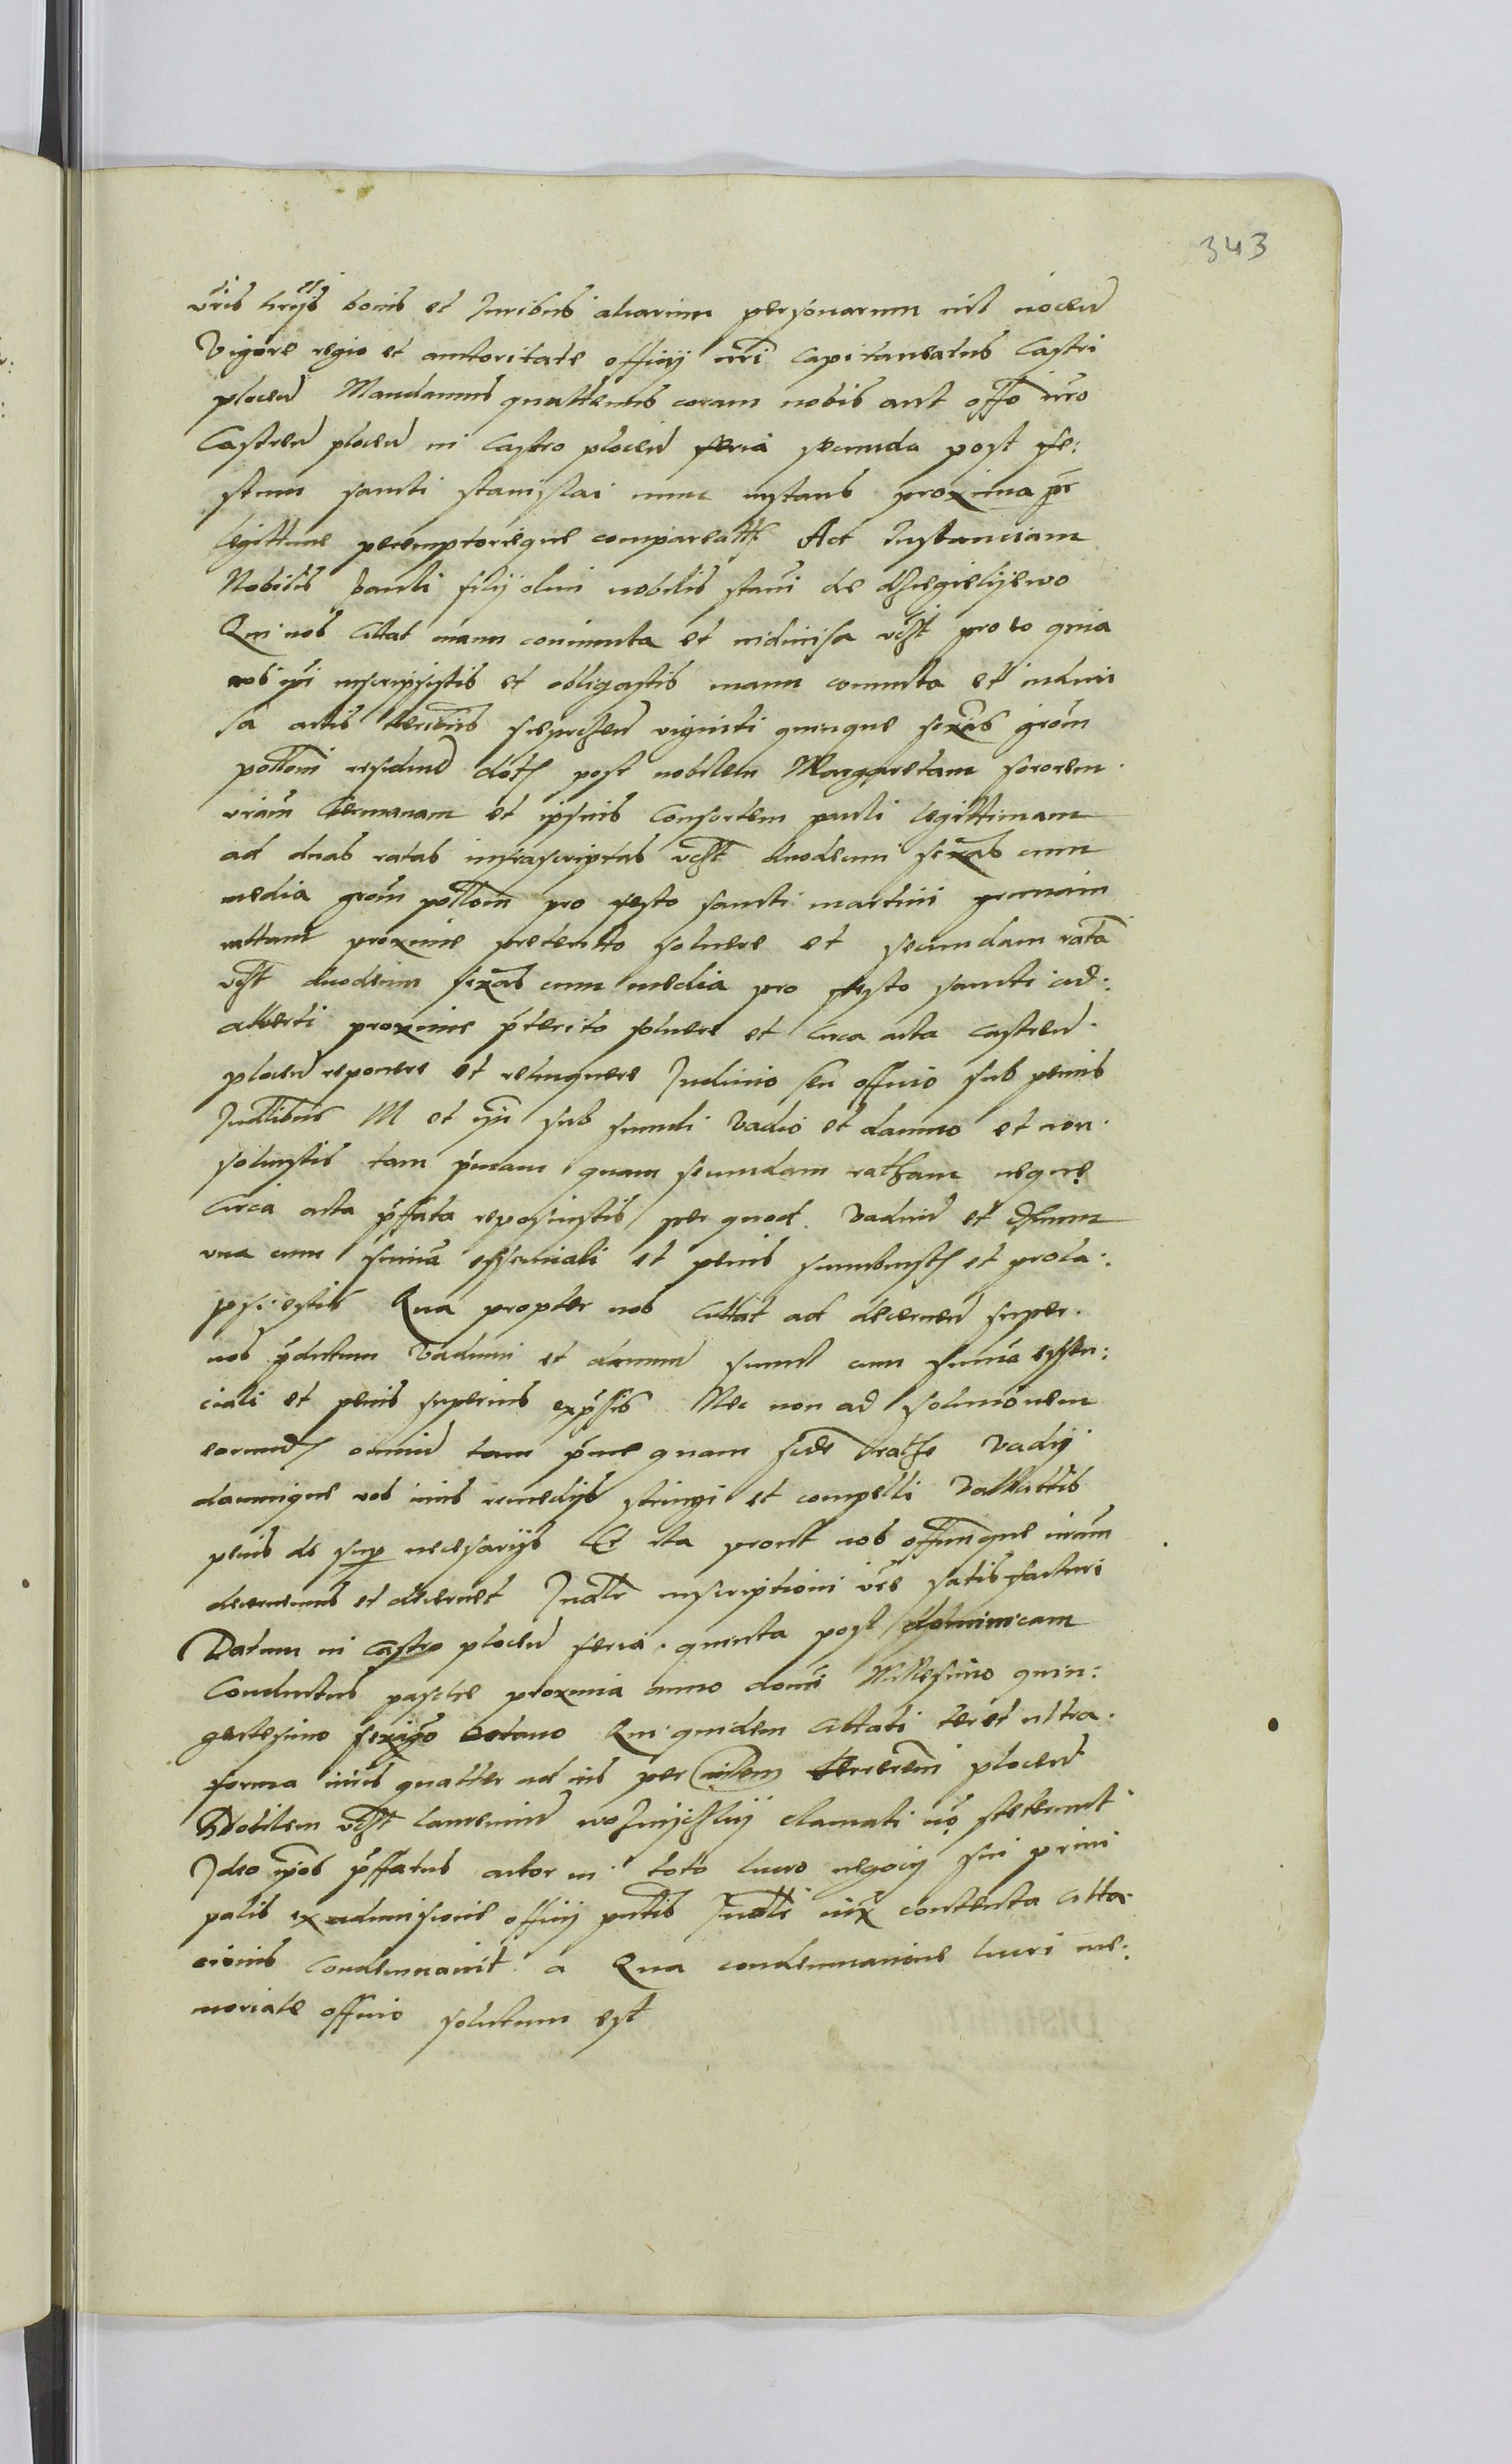 343
vris bonis et Juribus aliarum personarum nil nocen
Vigore regio et auctoritate officij nri Capitaneatus Castri
plocen Mandamus quattenus coram nobis aut offo nro
Castren plocen in Castro plocen feria secunda post fe:
stum sancti stanislai nunc instans proxima
legittime peremptorieque compareatis Ad Instanciam
Nobilis Pauli filij olim nobilis stani de
Qui vos Cittat manu coniuncta et indiuisa vcht pro eo quia
vos ipi inscripsistis et obligastis manu coniuncta et indiui
sa actis terribus viginti quinque sexas grom
pollom residuu dotis post nobilem Margaretam sororem
vram Germanam et ipsius Consortem pauli legittimam
ad duas ratas infrascriptas vcht duodecim sexas cum
media grom pollom pro festo sancti martini primam
rattam proxime preteritto soluere et secundam rata
vcht duodecim sexas cum media pro festo sancti ad:
alberti proxime pterito soluere et Circa acta castren
plocen reponere et relinquere Judicio seu officio sub penis
Judlibus M et sub simili Vadio et damno et non
soluistis tam pmam quam secundam ratham neque
Circa acta pffata reposuistis per quod Vadium et
vna cum suma essenciali et penis et prola:
psi estis Qua propter vos Cittat ad decernen super
vos pdictum Vadium et damnu simul cum suma essen:
ciali et penis superius expssis Nec non ad solucionem
eorund omniu tam pme quam scde rathe Vadij
damnique vos iuris remedijs stringi et compelli
penis de sup necessarijs Et ita prout nos offumque nrum
decernemus et decernet Judlr inscriptioni vre satisfacturi
Datum in Castro plocen feria quinta post dominicam
Conductus pasche proxima anno domi Millesimo quin:
gentesimo sexagmo octauo Qui quidem Cittati ter et ultra
forma iuris quatter ad ius per terrerem plocen
Nobilem vcht laurenciu clamati no steterunt
Ideo ipos pffatus actor in toto lucro negocij sui princi
palis ex admisione officij pntis Judli iux contenta Citta
cionis Condemnauit a Qua condemnacione lucri me:
moriale officio solutum est